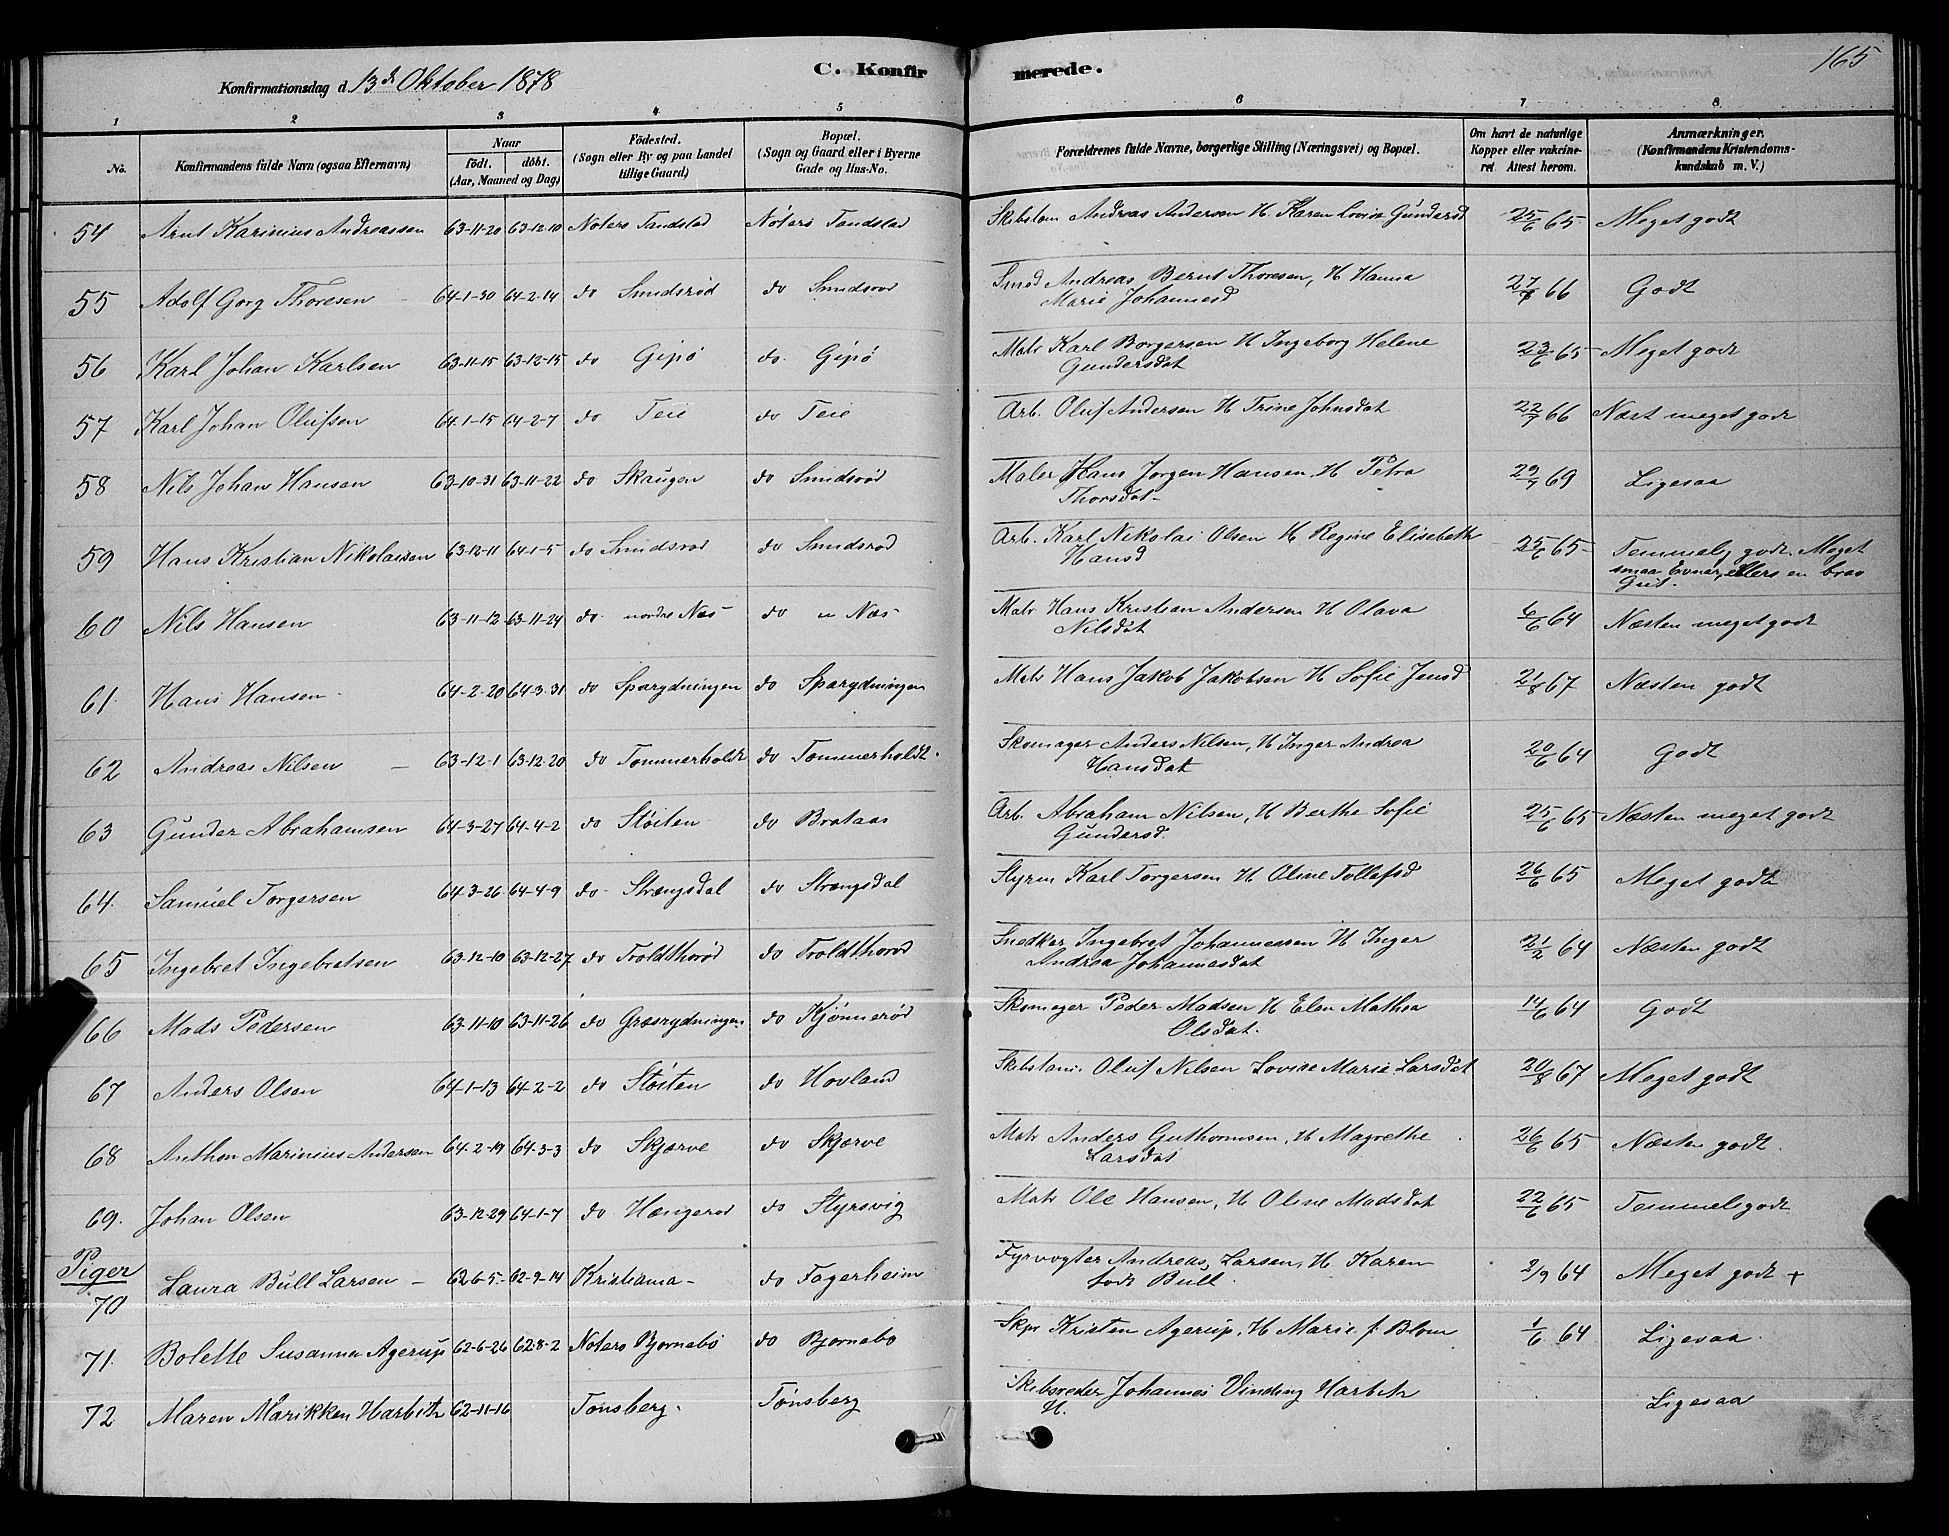 165
Konfirmationsdag d. 13de Oktober 1878
C. Konfirmerede.
1 2 3 4 5 6 7 8
No.
Konfirmandens fulde Navn (ogsaa Efternavn)
Naar
födt. döbt.
(Aar, Maaned og Dag)
Födested.
(Sogn eller By og paa Landet
tillige Gaard)
Bopæl.
(Sogn og Gaard eller i Byerne
Gade og Hus-No.
Forældrenes fulde Navne, borgerlige Stilling (Næringsvei) og Bopæl.
Om havt de naturlige
Kopper eller vakcine-
ret Attest herom.
Anmærkninger.
(Konfirmandens Kristendoms-
kundskab m. V.)
54 Arnt Karinius Andreassen 63-11-20 63-12-10 Nøterø Tandstad Nøterø Tandstad Skibstøm Andreas Andersen H Karen Lovise Gundersd 25/6 65 Meget godt
55 Adolf Gorg Thoresen 64-1-30 64-2-14 do Smidsrød do Smidsrød Smed Andreas Bernt Thoresen, H Hanna
Marie Johannesd 27/8 66 Godt
56 Karl Johan Karlsen 63-11-15 63-12-15 do Gipø do Gipø Matr Karl Borgersen H Ingeborg Helene
Gundersdat 23/6 65 Meget godt
57 Karl Johan Olufsen 64-1-15 64-2-7 do Teie do Teie Arb. Oluf Andersen H Trine Johnsdat 22/7 66 Næst meget godt
58 Nils Johan Hansen 63-10-31 63-11-22 do Skaugen do Smidsrød Maler Hans Jorgen Hansen H Petra
Thorsdat 29/7 69 Ligesaa
59 Hans Kristian Nikolaisen 63-12-11 64-1-5 do Smidsrød do Smidsrød Arb. Karl Nikolai Olsen H Regine Elisebeth
Hansd 25/6 65 Temmelig godt. Meget
smaa Evner, ellers en brav
Gut.
60 Nils Hansen 63-11-12 63-11-24 do nordre Næs do n Næs Matr Hans Kristian Andersen H Olava
Nilsdat 6/6 64 Næsten meget godt
61. Hans Hansen 64-2-20 64-3-31 do Sparydningen do Sparydningen Matr Hans Jakob Jakobsen H Sofie Jensd 21/8 67 Næsten godt
62 Andreas Nilsen 63-12-1 63-12-20 do Tommerholdt do Tommerholdt. Skomager Anders Nilsen, H Inger Andrea
Hansdat 20/6 64 Godt
63 Gunder Abrahamsen 64-3-27 64-4-2 do Støiten do Brataas Arb. Abraham Nilsen, H Berthe Sofie
Gundersd. 25/6 65 Næsten meget godt
64. Samuel Torgersen 64-3-26 64-4-9 do Strengsdal do Strengsdal Styrm Karl Torgersen H Oline Tollefsd 26/6 65 Meget godt
65 Ingebret Ingebretsen 63-12-10 63-12-27 do Troldthorød do Troldthorød Snedker Ingebret Johannessen H Inger
Andrea Johannesdat 21/2 64 Næsten godt
66 Mads Pedersen 63-11-10 63-11-26 do Græsrydningen do Kjønnerød Skomager Peder Madsen H Elen Mathea
Olsdat. 14/6 64 Godt
67 Anders Olsen 64-1-13 64-2-2 do Støiten do Hovland Skibstøm. Oluf Nilsen Lovise Marie Larsdat 20/8 67 Meget godt
68 Anthon Marinius Andersen 64-2-19 64-3-3 do Skjærve do Skjærve Matr Anders Guthormsen, H Magrethe
Larsdat 26/6 65 Næsten godt.
69. Johan Olsen 63-12-29 64-1-7 do Hængerød do Styrsvig Matr Ole Hansen, H Oline Madsdat 22/6 65 Temmelig godt
Piger
70 Laura Bull Larsen 62-6-5 62-9-14 Kristiania do Fagerheim Fyrvogter Andreas Larsen, H Karen
født Bull. 2/9 64 Meget godt +
71. Bolette Susanna Agerup 62-6-26 62-8-2 Noterø Bjornebo do Bjornebo Skpr Kristen Agerup, H Marie f. Blom 1/6 64 Ligesaa.
72 Maren Marikken Harbitz 62-11-16 Tønsberg. Tønsberg Skibsreder Johannes Vinding Harbitz
H. Ligesaa